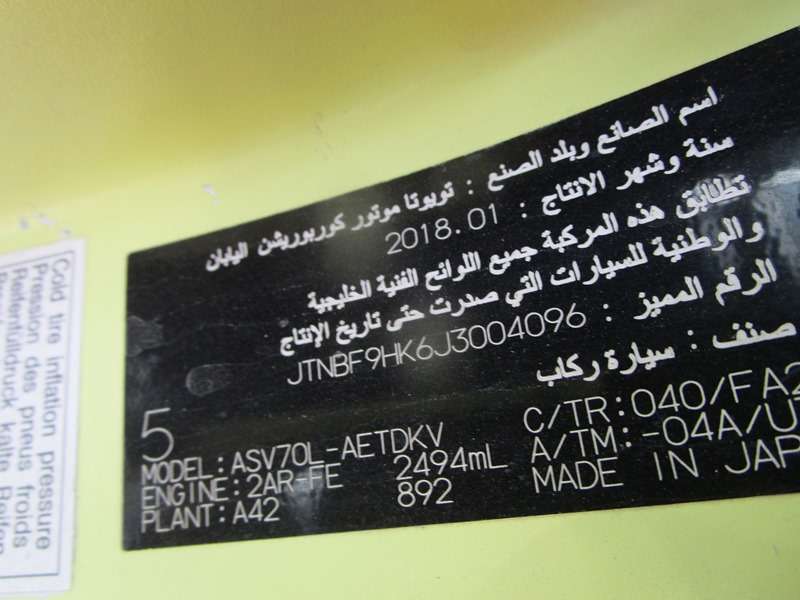 اسم الصانع وبلد الصنع : تويوتا موتور كوربوريشن اليابان
سنة وشهر الانتاج : 2018.01
تطابق هذه المركبة جميع اللوائح الفنية الخليجية
والوطنية للسيارات التي صدرت حتى تاريخ الإنتاج
الرقم المميز : JTNBF9HK6J3004096
صنف : سيارة ركاب
5
C/TR:040/FA2
MODEL:ASV70L-AETDKV
A/TM:-04A/U
ENGINE:2AR-FE 2494mL
MADE IN JAP
PLANT:A42 892
Cold tire inflation pressure
Pression des pneus froids
Reifenfülldruck kalte Reifen